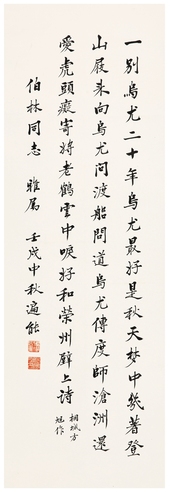 一別烏尤二十年烏尤最好是秋天夢中幾著登
山屐來向烏尤問渡船問道烏尤傳度師滄洲還
愛虎頭癡寄將老鶴雲中唳好和榮州壁上詩
桐城方
旭作
伯林同志 雅属 壬戌中秋遍能